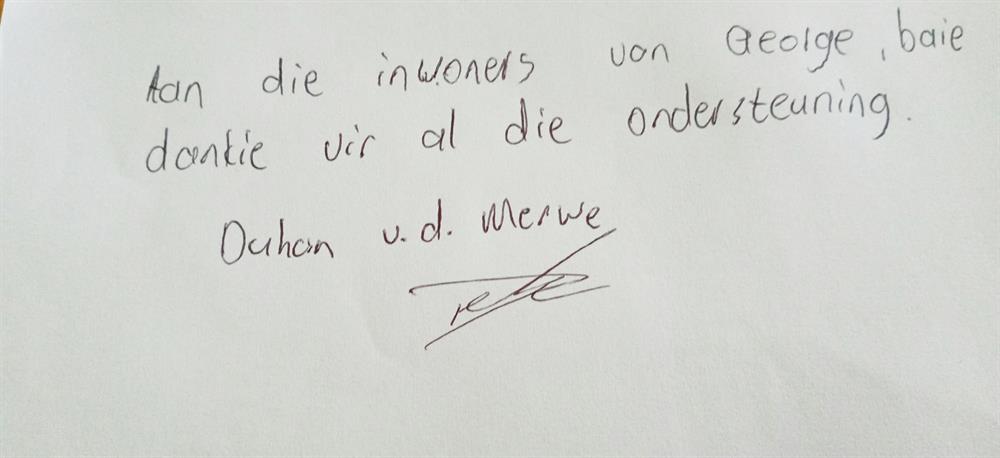 Aan die inwoners van George, baie
dankie vir al die ondersteuning.
Duhan v.d. Merwe